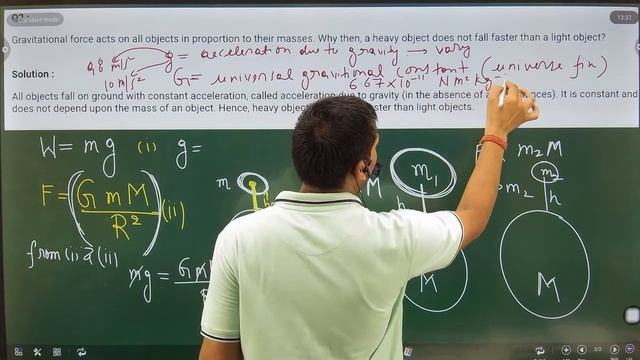 Q2
Standard mode
13:37
Gravitational force acts on all objects in proportion to their masses. Why then, a heavy object does not fall faster than a light object?
9.8 m/s² g = acceleration due to gravity → vary
10 m/s²
Solution :
G = universal gravitational constant (universe fix)
6.67 × 10⁻¹¹ N m² kg
All objects fall on ground with constant acceleration, called acceleration due to gravity (in the absence of It is constant and
does not depend upon the mass of an object. Hence, heavy objec faster than light objects.
W = mg (i) g =
F = (G m M / R²) (ii)
from (i) & (ii)
mg = G
m
M
m₁
m₂ M
m₂
m₂
h
M
M
2/2